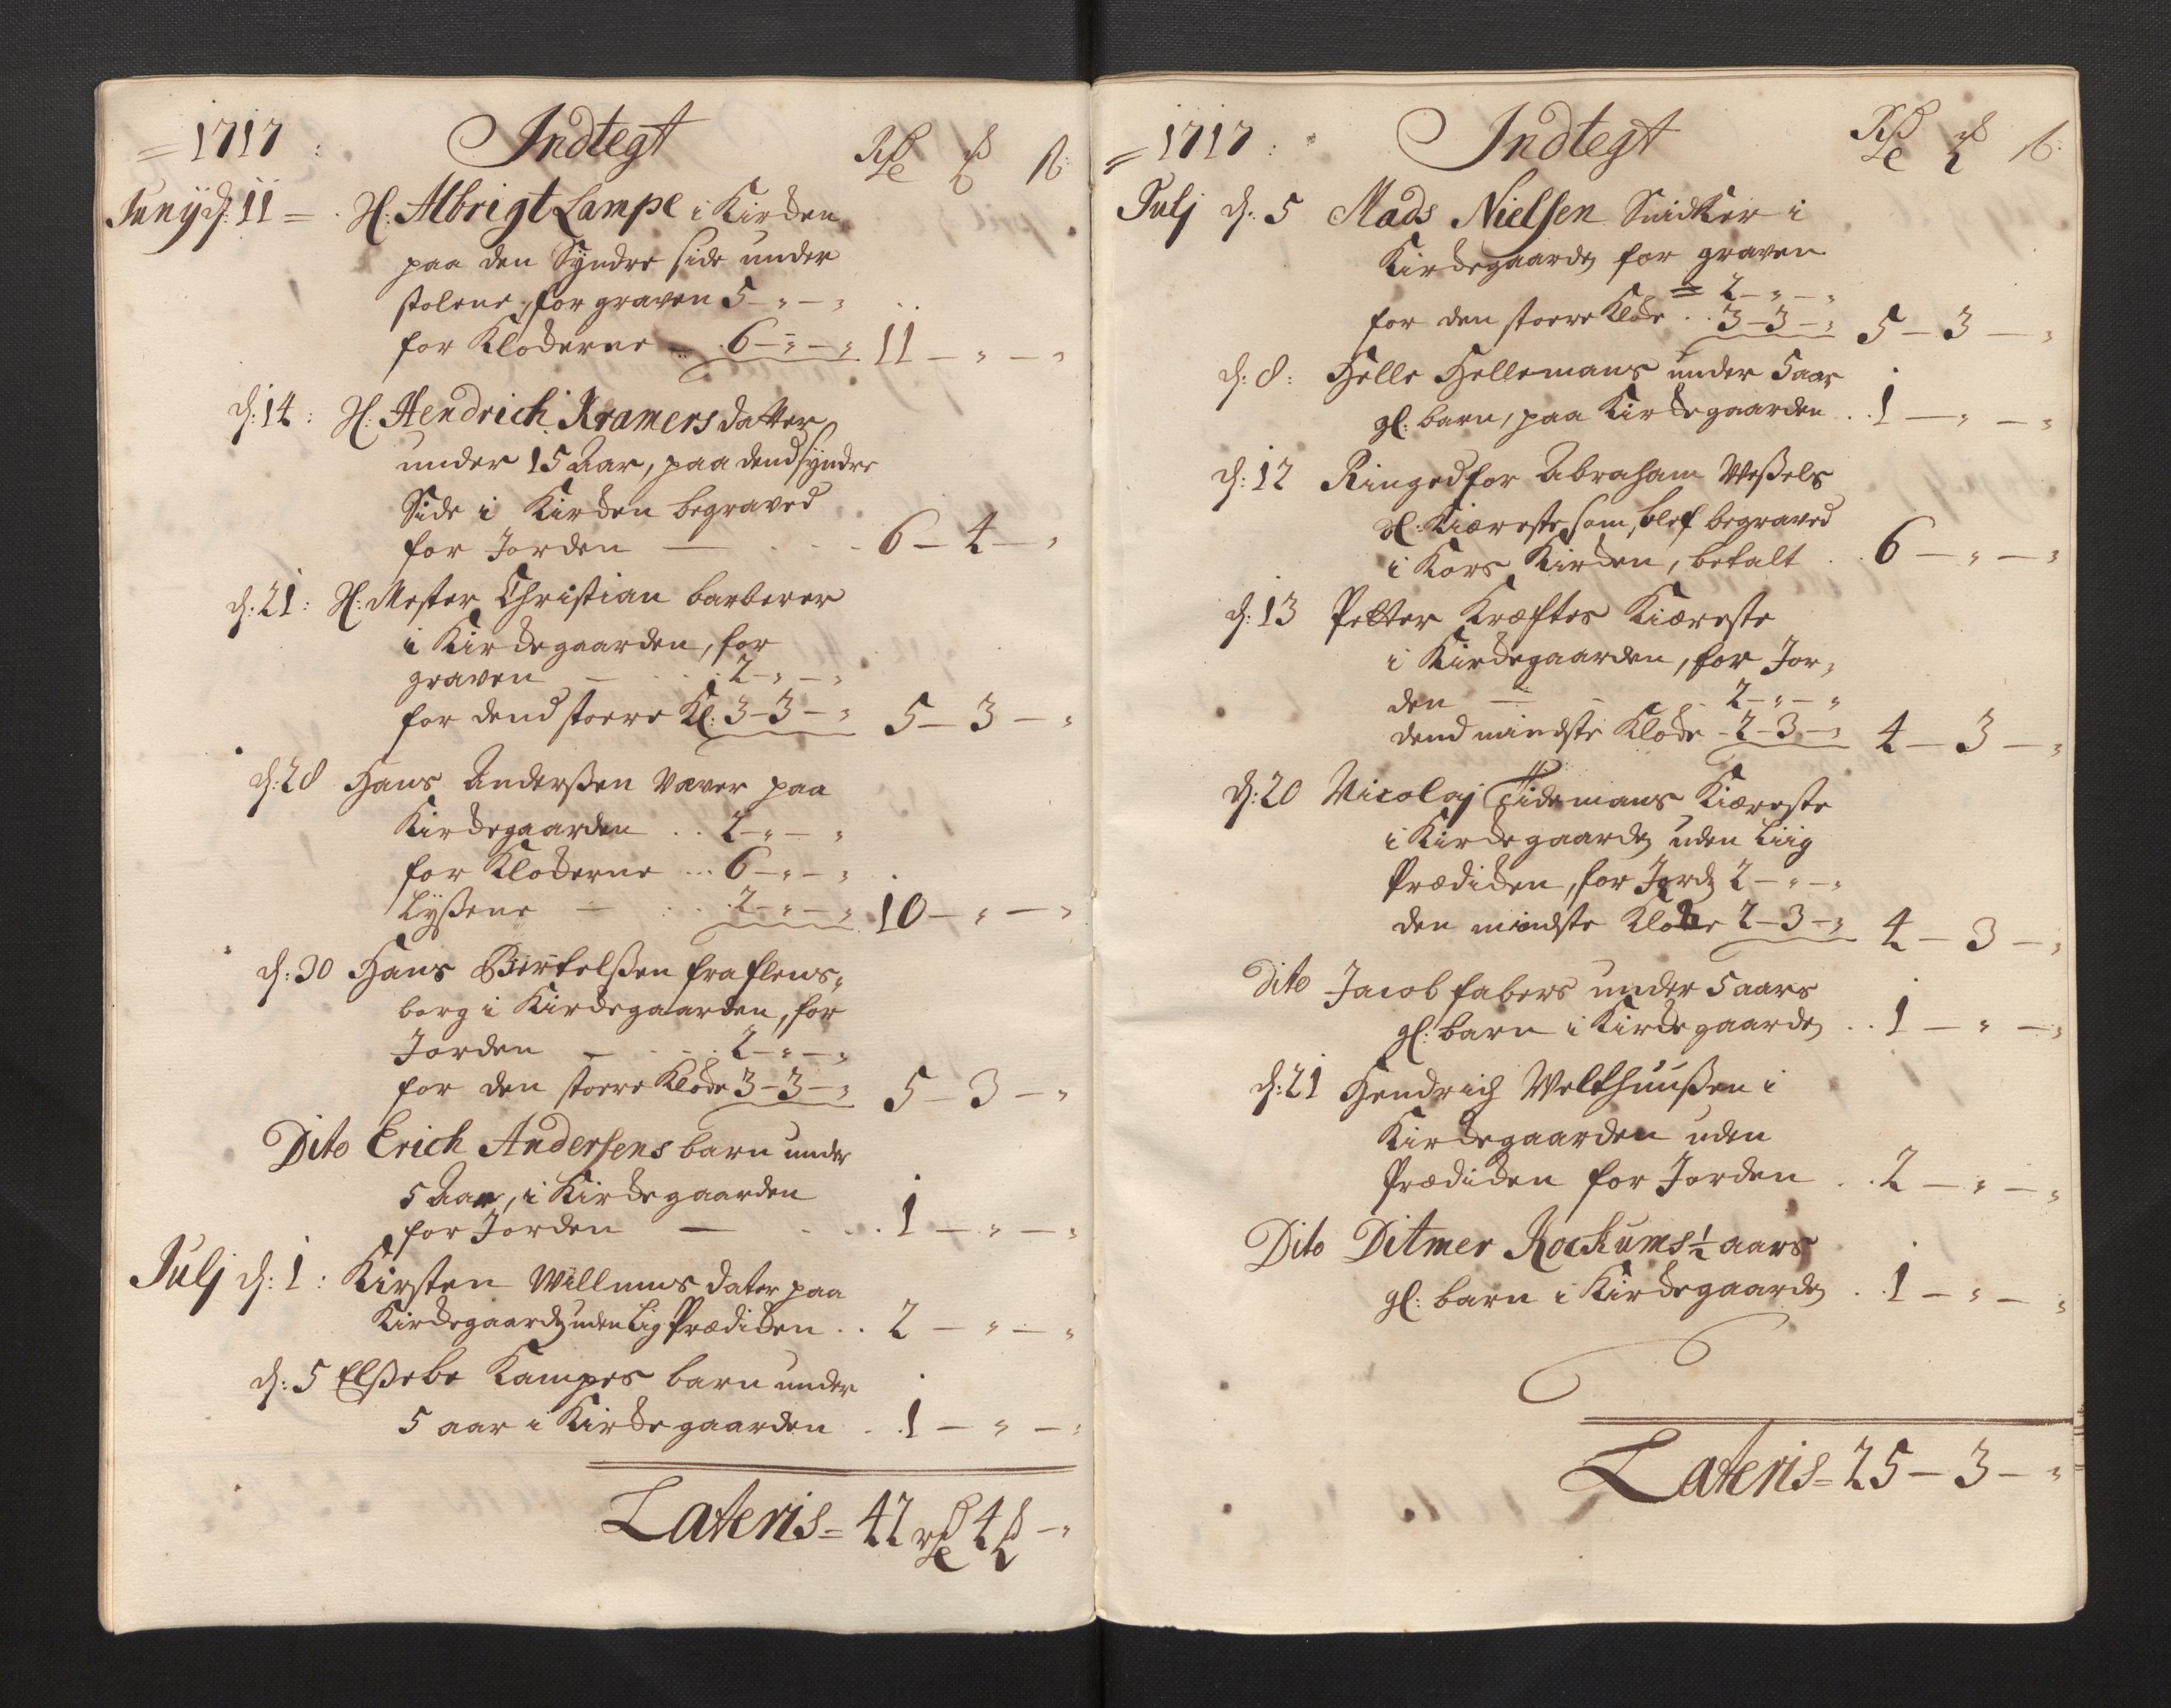 1717 : Indtegt Rdr mk s:
Junij d: 11 = H: Albrigt Lampe i Kircken
paa den Syndre side under
stolene, for graven 5 - " - "
for Klockerne - 6 - " - " 11 - " - "
d: 14 : H: Hendrich Kramers datter
under 15 Aar, paa dend syndre
Side i Kircken begraved
for Jorden - 6 - 4 - "
d: 21 : H: Mester Christian barberer
i Kirckegaarden, for
graven - 2 - " - "
for dend storre Kl: 3 - 3 - " 5 - 3 - "
d: 28 Hans Anderssen væver paa
Kirckegaarden .. 2 - " - "
for Klockerne ... 6 - " - "
Lyssene - 2 - " - " 10 - " - "
d: 30 Hans Bertelssen fra flens,,
borg i Kirckegaarden, for
Jorden - 2 - " - "
for den storre Klocke 3 - 3 - " 5 - 3 - "
Dito Erich Andersens barn under
5 Aar, i Kirckegaarden
for Jorden - 1 - " - "
Julj d: 1 : Kirsten Willums dater paa
Kirckegaarden uden Lig Prædicken .. 2 - " - "
d: 5 Elssebe Kampes barn under
5 aar i Kirckegaarden . 1 - " - "
Lateris = 42 rdr 4 mk - "
= 1717 : Indtegt Rdr mk s:
Julj d: 5 Mads Nielsen Snidker i
Kirckegaarden for graven
= 2 - " - "
for den storre Klocke .. 3 - 3 - " 5 - 3 - "
d: 8 : Helle Hellemans under 5 aar
gl: barn, paa Kirckegaarden . 1 - " - "
d: 12 Ringed for Abraham Wessels
Sl: Kiæreste, som blef begraved
i Kors Kircken, betalt . 6 - " - "
d: 13 Petter Kræftes Kiæreste
i Kirckegaarden, for Jor,
den - 2 - " - "
dend mindste Klocke - 2 - 3 - " 4 - 3 - "
d: 20 Nicolaj Tidemans Kiæreste
i Kirckegaarden uden Liig
Prædicken, for Jorden 2 - " - "
den mindste Klocke 2 - 3 - " 4 - 3 - "
Dito Jacob fabers under 5 aars
gl: barn i Kirckegaarden .. 1 - " - "
d: 21 Hendrich Welthuussen i
Kirckegaarden uden
Prædicken for Jorden .. 2 - " - "
Dito Ditmer Rockums ½ aars
gl: barn i Kirckegaarden . 1 - " - "
Lateris = 25 - 3 - "